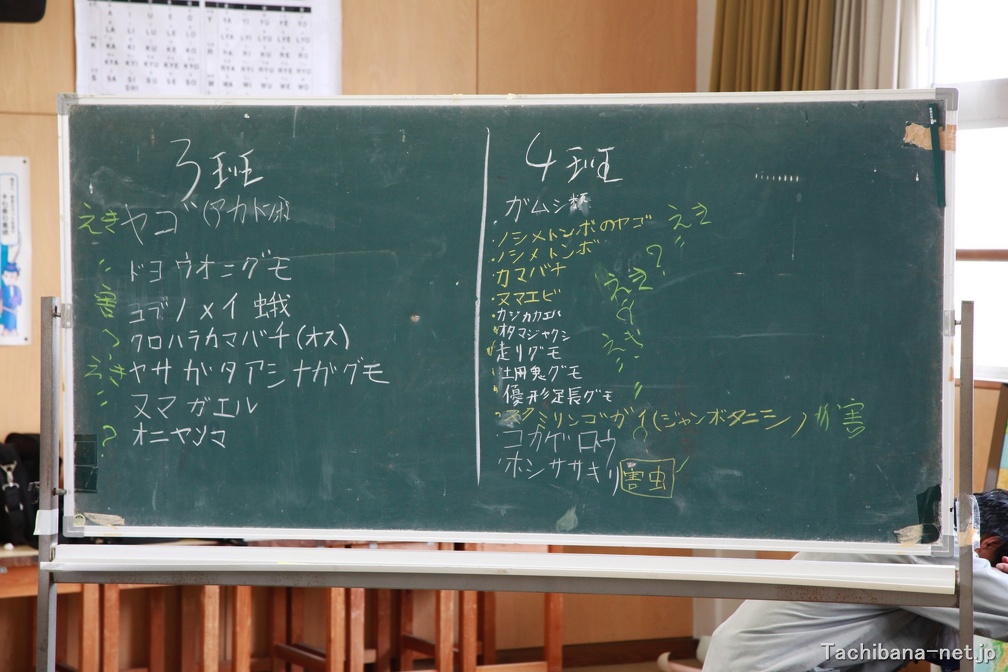 3班
えき ヤゴ (アカトンボ)
〃 ドヨウオニグモ
害 コブノメイ蛾
? クロハラカマバチ(オス)
えき ヤサガタアシナガグモ
〃 ヌマガエル
? オニヤンマ
4班
ガムシ類
・ノシメトンボのヤゴ えき
・ノシメトンボ 〃
・カマバチ ?
・ヌマエビ えき
・カジカカエル 〃
・オタマジャクシ
・走りグモ えき
・土用鬼グモ 〃
・優形足長グモ 〃
・スクミリンゴガイ(ジャンボタニシ) 害
・コカゲロウ
・ホシササキリ 害虫
Tachibana-net.jp